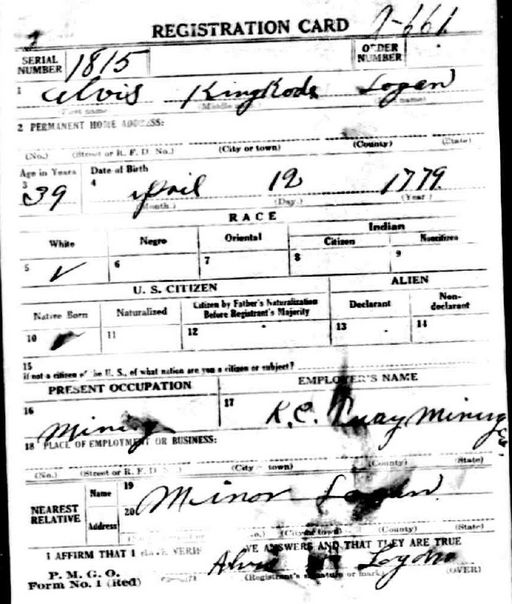 REGISTRATION CARD
SERIAL NUMBER 1815 ORDER NUMBER
1 Alvis Logan
First name (Middle name)
2 PERMANENT HOME ADDRESS:
(No.) (Street or R. F. D. No.) (City or town) (County) (State)
Age in Years Date of Birth
3 4
39 April 12 1779
(Month.) (Day.) (Year)
RACE
White Negro Oriental Indian
Citizen Noncitizen
5 ✓ 6 7 8 9
U. S. CITIZEN ALIEN
Native Born Naturalized Citizen by Father's Naturalization Before Registrant's Majority Declarant Non-declarant
10 11 12 13 14
15
If not a citizen of the U. S., of what nation are you a citizen or subject?
PRESENT OCCUPATION EMPLOYER'S NAME
16 Mining 17 K.C. Mining
18 PLACE OF EMPLOYMENT OR BUSINESS:
(No.) (Street or R. F. D.) (City town) (County) (State)
NEAREST RELATIVE Name 19 Minor Logan
Address 20
(No.) (City or town) (County) (State)
I AFFIRM THAT I HAVE ANSWERS AND THAT THEY ARE TRUE
P. M. G. O.
Form No. 1 (Red) (Registrant's signature or mark) (OVER)